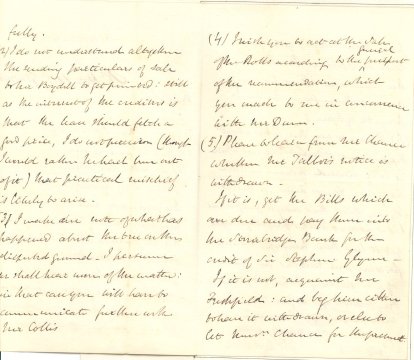 fully.
2) I do not understand altogether
the sending particulars of sale
to be printed: still
as the interest of the creditors is
that the loan should fetch a
good price, I do not perceive (though
I would rather he had been out
of it) that practical mischief
is likely to arise.
3) I made a note of what has
happened about the
disputed ground. I presume
we shall hear more of the matter:
in that case you will have to
communicate further with
Mr Collis
(4) I wish you to act at the Sale
of the Rolls according to the general purport
of the recommendation, which
you made to me in concurrence
with Mr Dunn.
(5) Please to learn from Mr Chance
whether Mr Talbot's notice is
withdrawn.
If it is, get the Bills which
are due and pay them into
the Stourbridge Bank for the
credit of Sir Stephen Glynne
If it is not, acquaint Mr
Freshfield: and beg him either
to have it withdrawn, or else to
let Messrs Chance